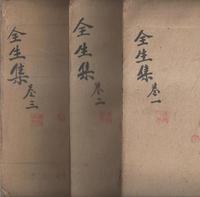 全生集 卷一
全生集 卷二
全生集 卷三